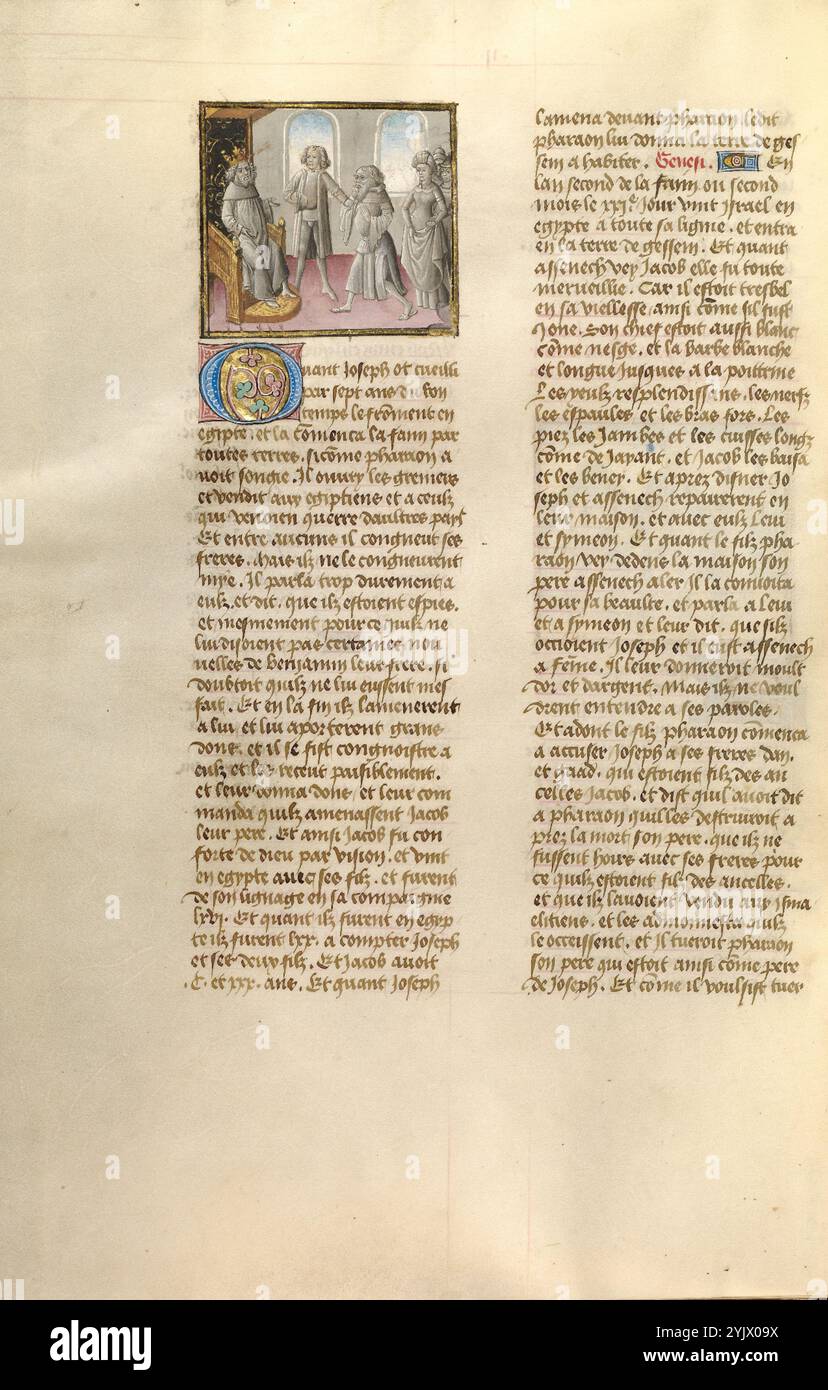 Quant Joseph ot cueilli
par sept ans du bon
temps le froment en
egipte. et la cōmenca la fam par
toutes terres. sicōme pharaon a
voit songie. Il ouvry les greniers
et vendit aux egiptiens et a ceulz
qui venoien querre daultres pars
Et entre aucuns il congneut ses
freres. Mais ilz ne le congneurent
mye. Il parla trop durement a
eulz. et dit. que ilz estoient espies.
et mesmement pour ce quilz ne
lui disoient pas certaines nou
uelles de benjamin leur frere. si
doubtoit quilz ne lui eussent mes
fait. Et en la fin ilz lamenerent
a lui et lui aporterent grans
dons. et il se fist congnoistre a
eulz et les recent paisiblement.
et leur donna dons. et leur com
manda quilz amenassent Jacob
leur pere. Et ainsi Jacob fu con
forte de dieu par vision. et vint
en egypte avec ses filz. et furent
de son lignage en sa compaignie
lxvi. Et quant ilz furent en egyp
te ilz furent lxx. a compter Joseph
et ses deux filz. Et Jacob avoit
.C. et xxx. ans. Et quant Joseph
lamena devant pharaon ledit
pharaon lui donna la terre de ges
sem a habiter. Genesi. En
lan second de la fam ou second
mois le xxi.e Jour vint Israel en
egypte a toute sa lignie. et entra
en la terre de gessem. Et quant
assenech vey Jacob elle fu toute
merueillie. Car il estoit tresbel
en sa viellesse ainsi cōme sil fust
Jone. Son chief estoit aussi blanc
cōme nesge. et la barbe blanche
et longue jusques a la poittrine
Les yeulx resplendissans. les nerfz
les espaules et les bras fors. Les
piez les Jambes et les cuisses longz
cōme de Jayant. et Jacob les baisa
et les beney. Et aprez disner Jo
seph et assenech repairerent en
leur maison. et avec eulz Leui
et symeon. Et quant le filz pha
raon vey dedens la maison son
pere assenech aler Il la couuoita
pour sa beaulte. et parla a Leui
et a symeon et leur dit. que silz
occioient Joseph et il eust assenech
a fēme. Il leur donneroit moult
dor et dargent. Mais ilz ne voul
drent entendre a ses paroles.
Et adont le filz pharaon cōmenca
a accuser Joseph a ses freres dan.
et gaad. qui estoient filz des an
celles Jacob. et dist quil avoit dit
a pharaon quilles destruiroit a
prez la mort son pere. que ilz ne
fussent hoirs avec ses freres pour
ce quilz estoient filz des ancelles.
et que ilz lavoient vendu aux isma
elitiens. et les admonnesta quilz
le occeissent. et il tueroit pharaon
son pere qui estoit ainsi cōme pere
de Joseph. Et cōme il voulsist tuer
a
alamy
Image ID: 2YJX09X
www.alamy.com